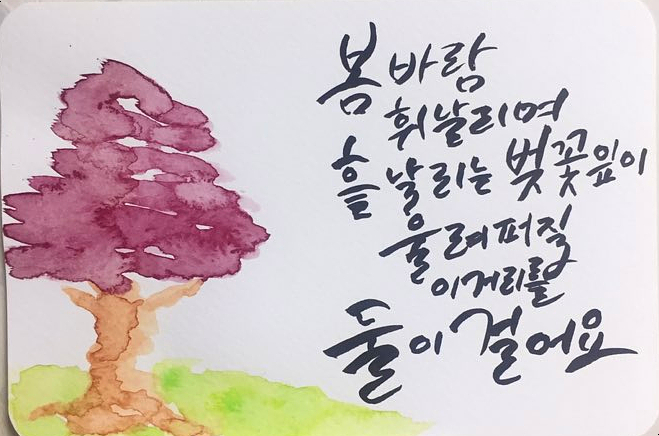 봄바람
휘날리며
흩날리는 벚꽃잎이
울려퍼질
이거리를
둘이 걸어요